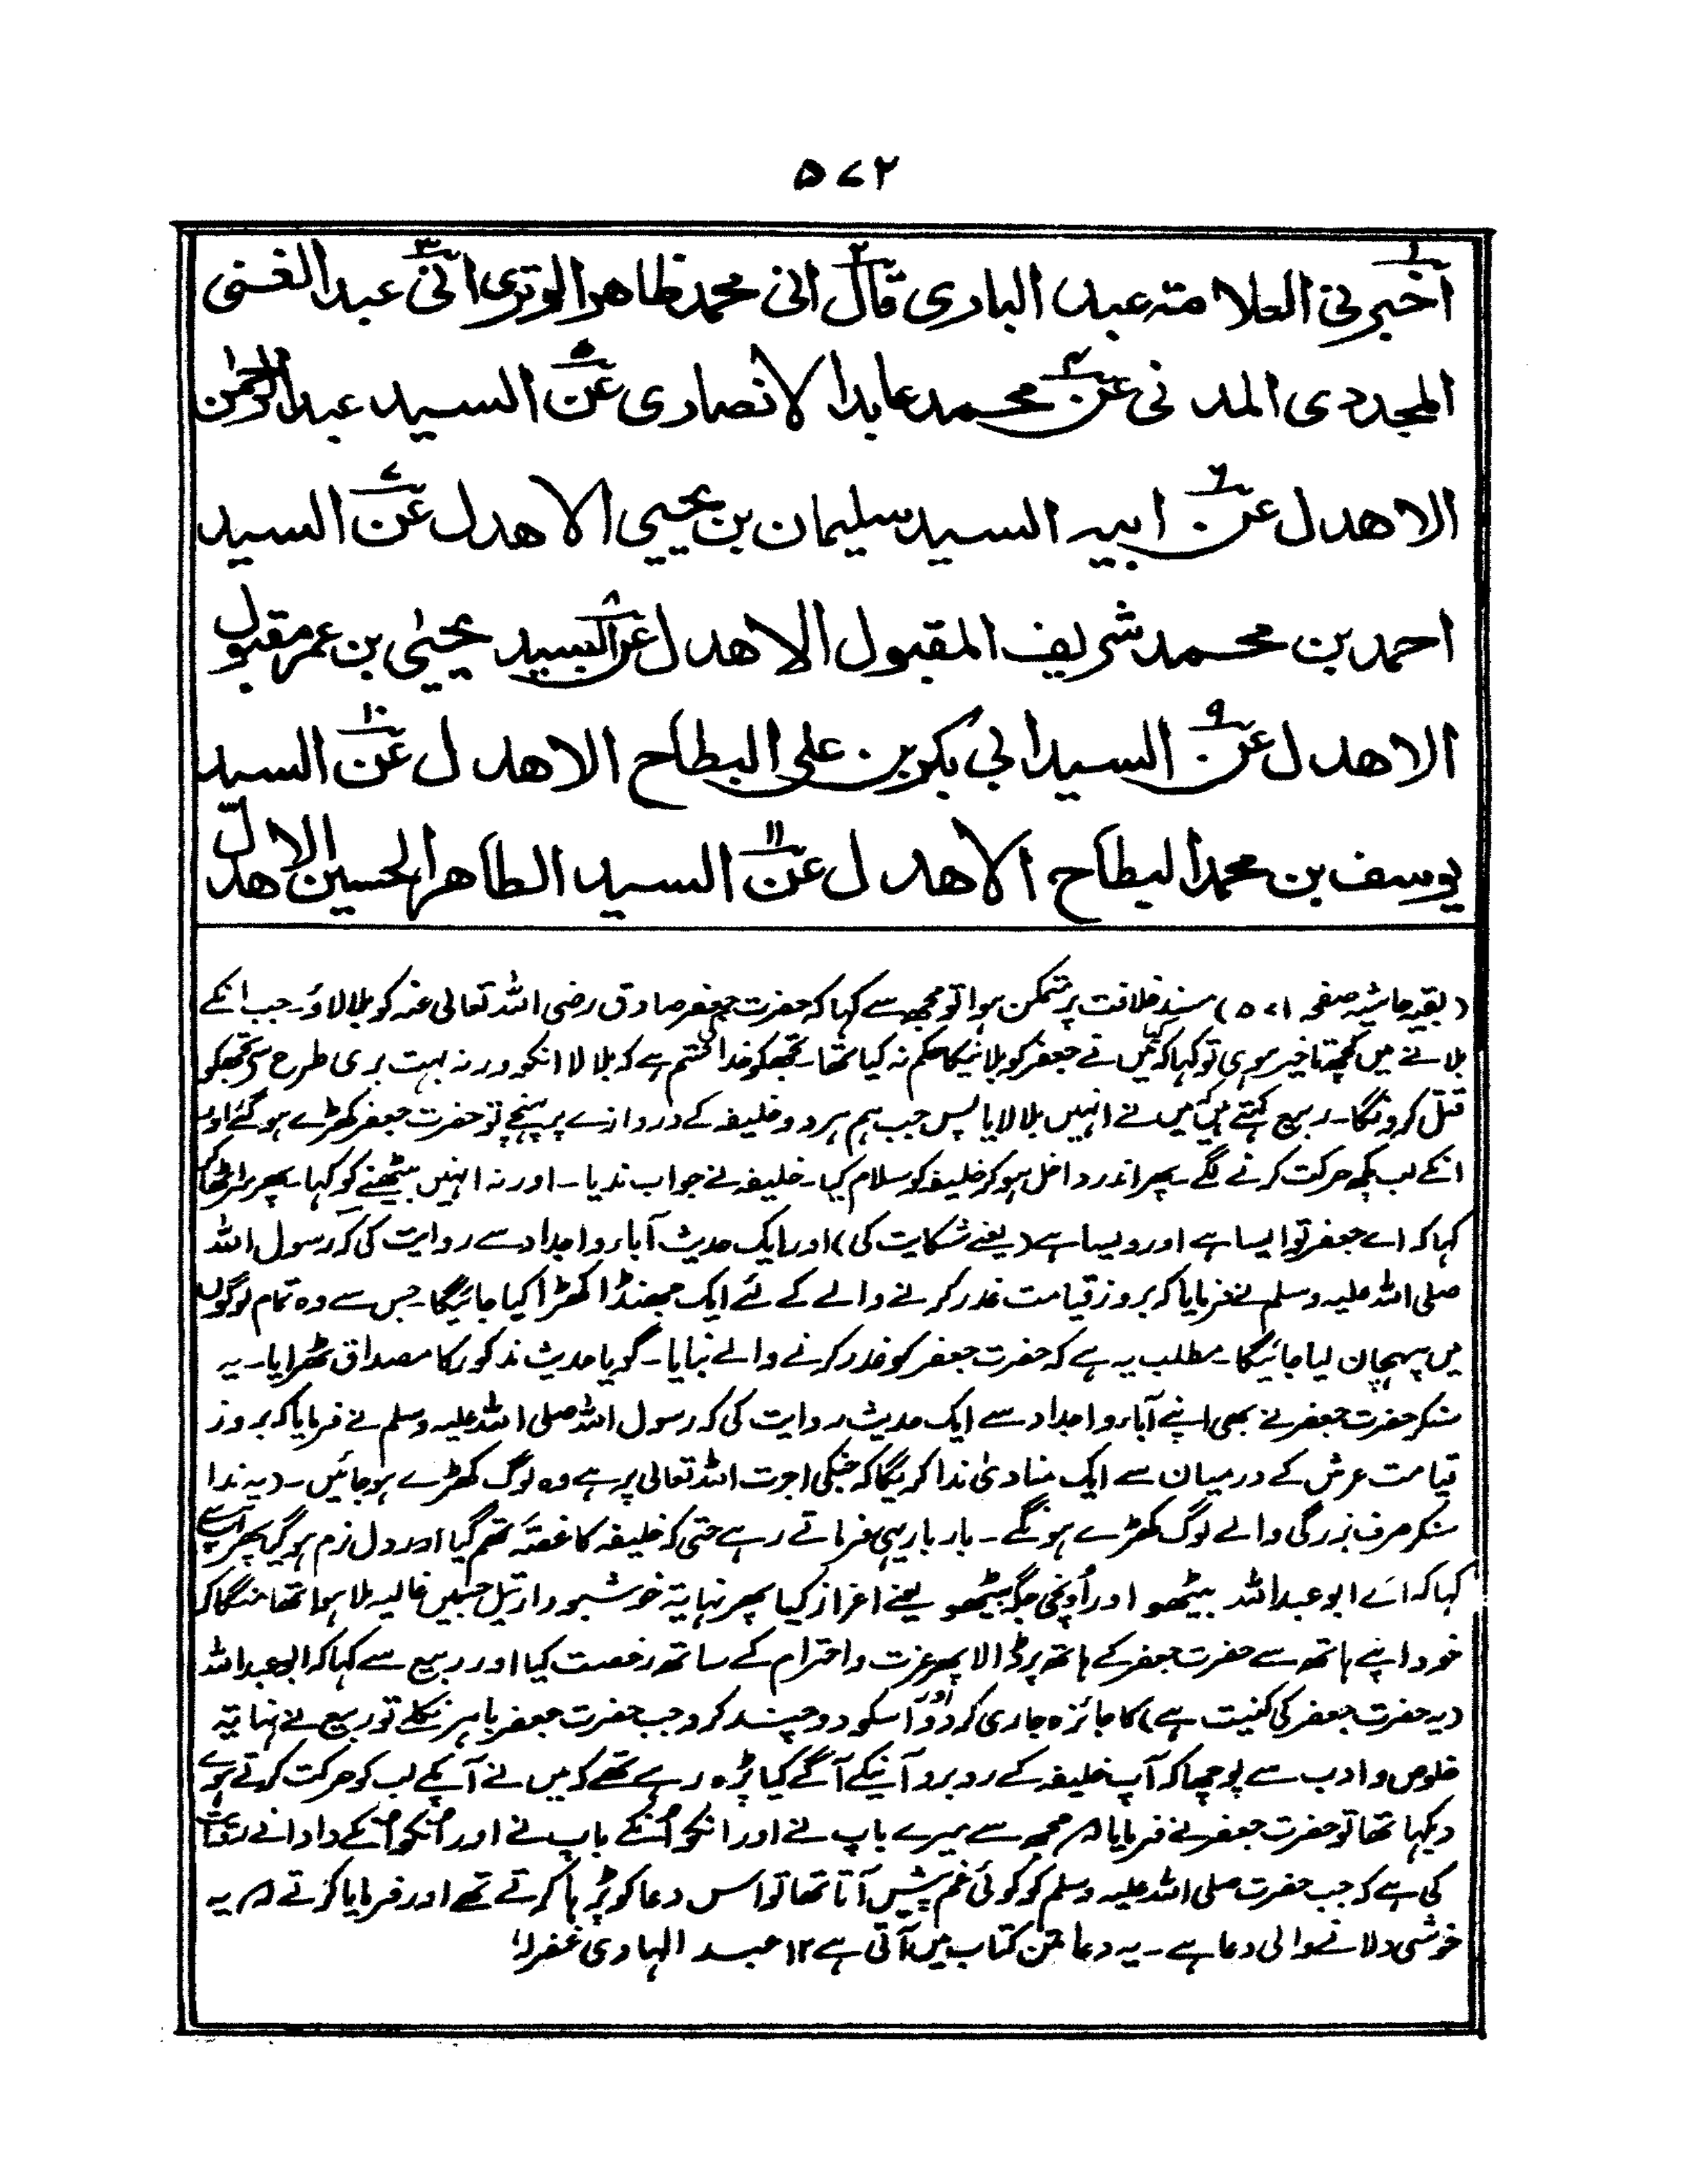 ۵۷۲
۱ اخبرنی العلامتہ عبد الباری قال ۲ انی محمد ظاهر الوتری ۳ انی عبد الغنی
المجددی المدنی ۴ عن محمد عابد الانصاری ۵ عن السید عبد الرحمٰن
الاهدل ۶ عن ابیه السید سلیمان بن یحیی الاهدل ۷ عن السید
احمد بن محمد شریف المقبول الاهدل ۸ عن السید یحییٰ بن عمر مقبول
الاهدل ۹ عن السید ابی بکر بن علی البطاح الاهدل ۱۰ عن السید
یوسف بن محمد البطاح الاهدل ۱۱ عن السید الطاهر الحسین الاهدل
(بقیہ حاشیہ صفحہ ۵۷۱) مسند خلافت پر متمکن ہوا تو مجھ سے کہا کہ حضرت جعفر صادق رضی اللہ تعالی عنہ کو بلا لاؤ۔ جب انکے
بلانے میں کچھ تاخیر ہوی تو کہا کہ کیا میں نے جعفر کو بلانیکا حکم نہ کیا تھا۔ تجھکو خدا کی قسم ہے کہ بلا لا انکو ورنہ بہت بری طرح سے تجھکو
قتل کرونگا۔ ربیع کہتے ہیں کہ میں نے انہیں بلا لایا پس جب ہم ہر دو خلیفہ کے دروازے پر پہنچے تو حضرت جعفر کھڑے ہو گئے اور
انکے لب کچھ حرکت کرنے لگے۔ پھر اندر داخل ہو کر خلیفہ کو سلام کیا۔ خلیفہ نے جواب ندیا۔ اور نہ انہیں بیٹھنے کو کہا۔ پھر سر اٹھا کر
کہا کہ اے جعفر تو ایسا ہے اور ویسا ہے (یعنے شکایت کی) اور ایک حدیث آباء و اجداد سے روایت کی کہ رسول اللہ
صلی اللہ علیہ وسلم نے فرمایا کہ بروز قیامت غدر کرنے والے کے لئے ایک جھنڈا کھڑا کیا جائیگا۔ جس سے وہ تمام لوگوں
میں پہچان لیا جائیگا۔ مطلب یہ ہے کہ حضرت جعفر کو غدر کرنے والے بنایا۔ گویا حدیث مذکور کا مصداق ٹھرایا۔ یہ
سنکر حضرت جعفر نے بھی اپنے آباء و اجداد سے ایک حدیث روایت کی کہ رسول اللہ صلی اللہ علیہ وسلم نے فرمایا کہ بروز
قیامت عرش کے درمیان سے ایک منادیٰ ندا کریگا کہ جنکی اجرت اللہ تعالی پر ہے وہ لوگ کھڑے ہو جائیں۔ (یہ ندا
سنکر صرف بزرگی والے لوگ کھڑے ہونگے۔ بار بار یہی فرماتے رہے حتی کہ خلیفہ کا غصّہ تھم گیا اور دل نرم ہو گیا پھر اسے
کہا کہ اے ابو عبد اللہ بیٹھو اور اُونچی جگہ بیٹھو یعنے اعزاز کیا پھر نہایتہ خوشبودار تیل جسمیں غالیہ ملا ہوا تھا منگا کر
خود اپنے ہاتھ سے حضرت جعفر کے ہاتھ پر ڈالا پھر عزت و احترام کے ساتھ رخصت کیا اور ربیع سے کہا کہ ابو عبد اللہ
(یہ حضرت جعفر کی کنیت ہے) کا جائزہ جاری کر دو اور اسکو دو چند کر و جب حضرت جعفر باہر نکلے تو ربیع نے نہایتہ
خلوص و ادب سے پوچھا کہ آپ خلیفہ کے روبرو آنیکے آگے کیا پڑھ رہے تھے کہ میں نے آپکے لب کو حرکت کرتے ہوے
دیکھا تھا تو حضرت جعفر نے فرمایا ۸ مجھ سے میرے باپ نے اور انکو اُنکے باپ نے اور اُنکو اُنکے دادا نے روایت
کی ہے کہ جب حضرت صلی اللہ علیہ وسلم کو کوئی غم پیش آتا تھا تو اس دعا کو پڑہا کرتے تھے اور فرمایا کرتے ۸ یہ
خوشی دلانے والی دعا ہے۔ یہ دعا متن کتاب میں آتی ہے ۱۲ عبد الہادی غفرلہٗ